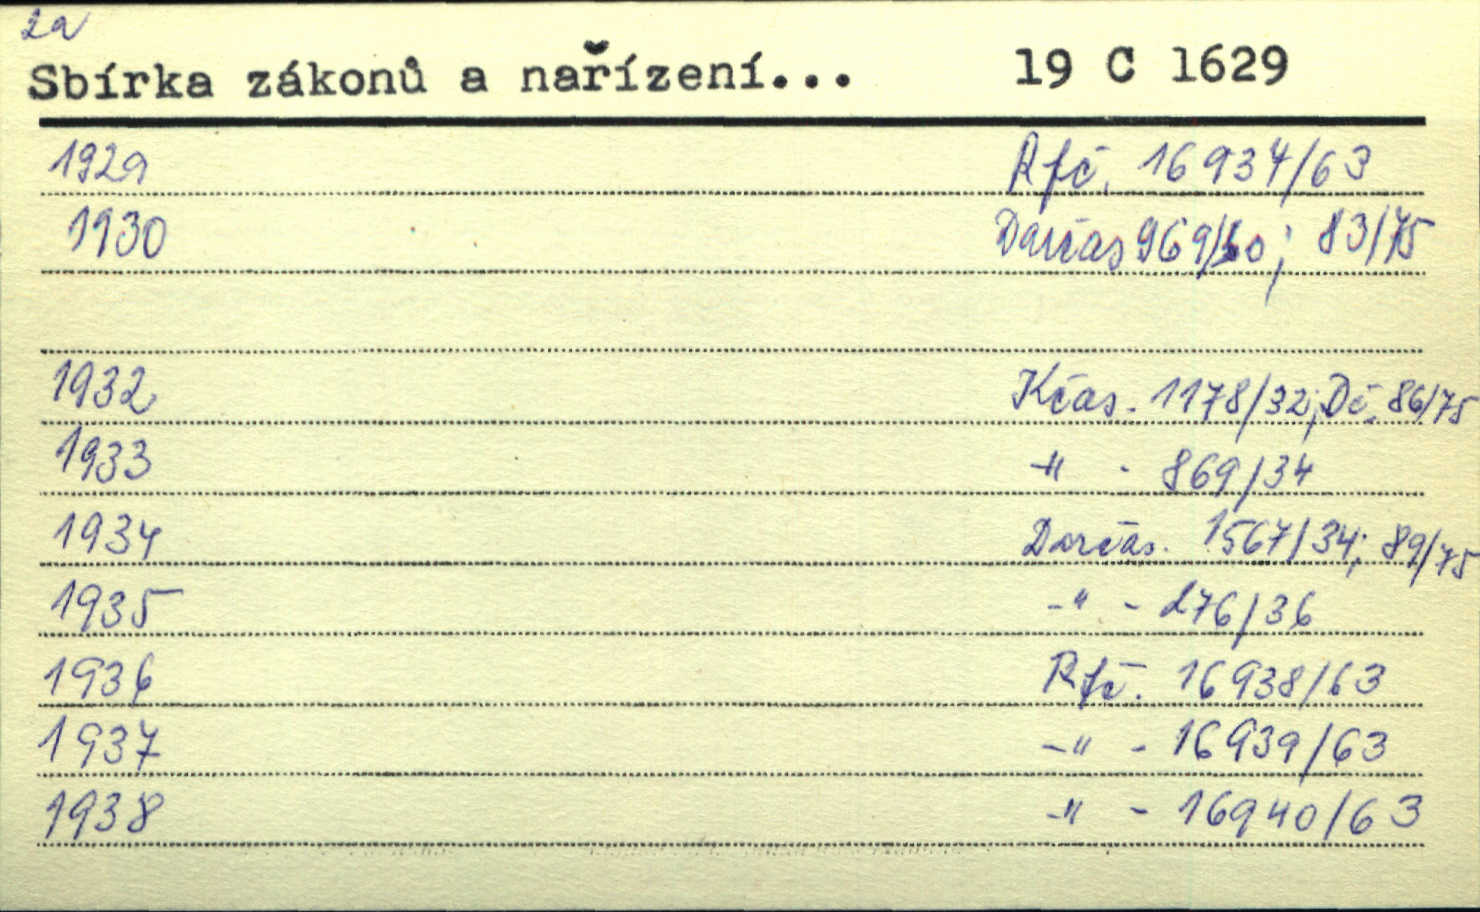 2a
Sbírka zákonů a nařízení... 19 C 1629
1929 Rfč. 16934/63
1930 Darčas 969/60; 83/75
1932 Kčas. 1178/32; Dč. 86/75
1933 -"- 869/34
1934 Darčas. 1567/34; 89/75
1935 -"- 276/36
1936 Rfč. 16938/63
1937 -"- 16939/63
1938 -"- 16940/63